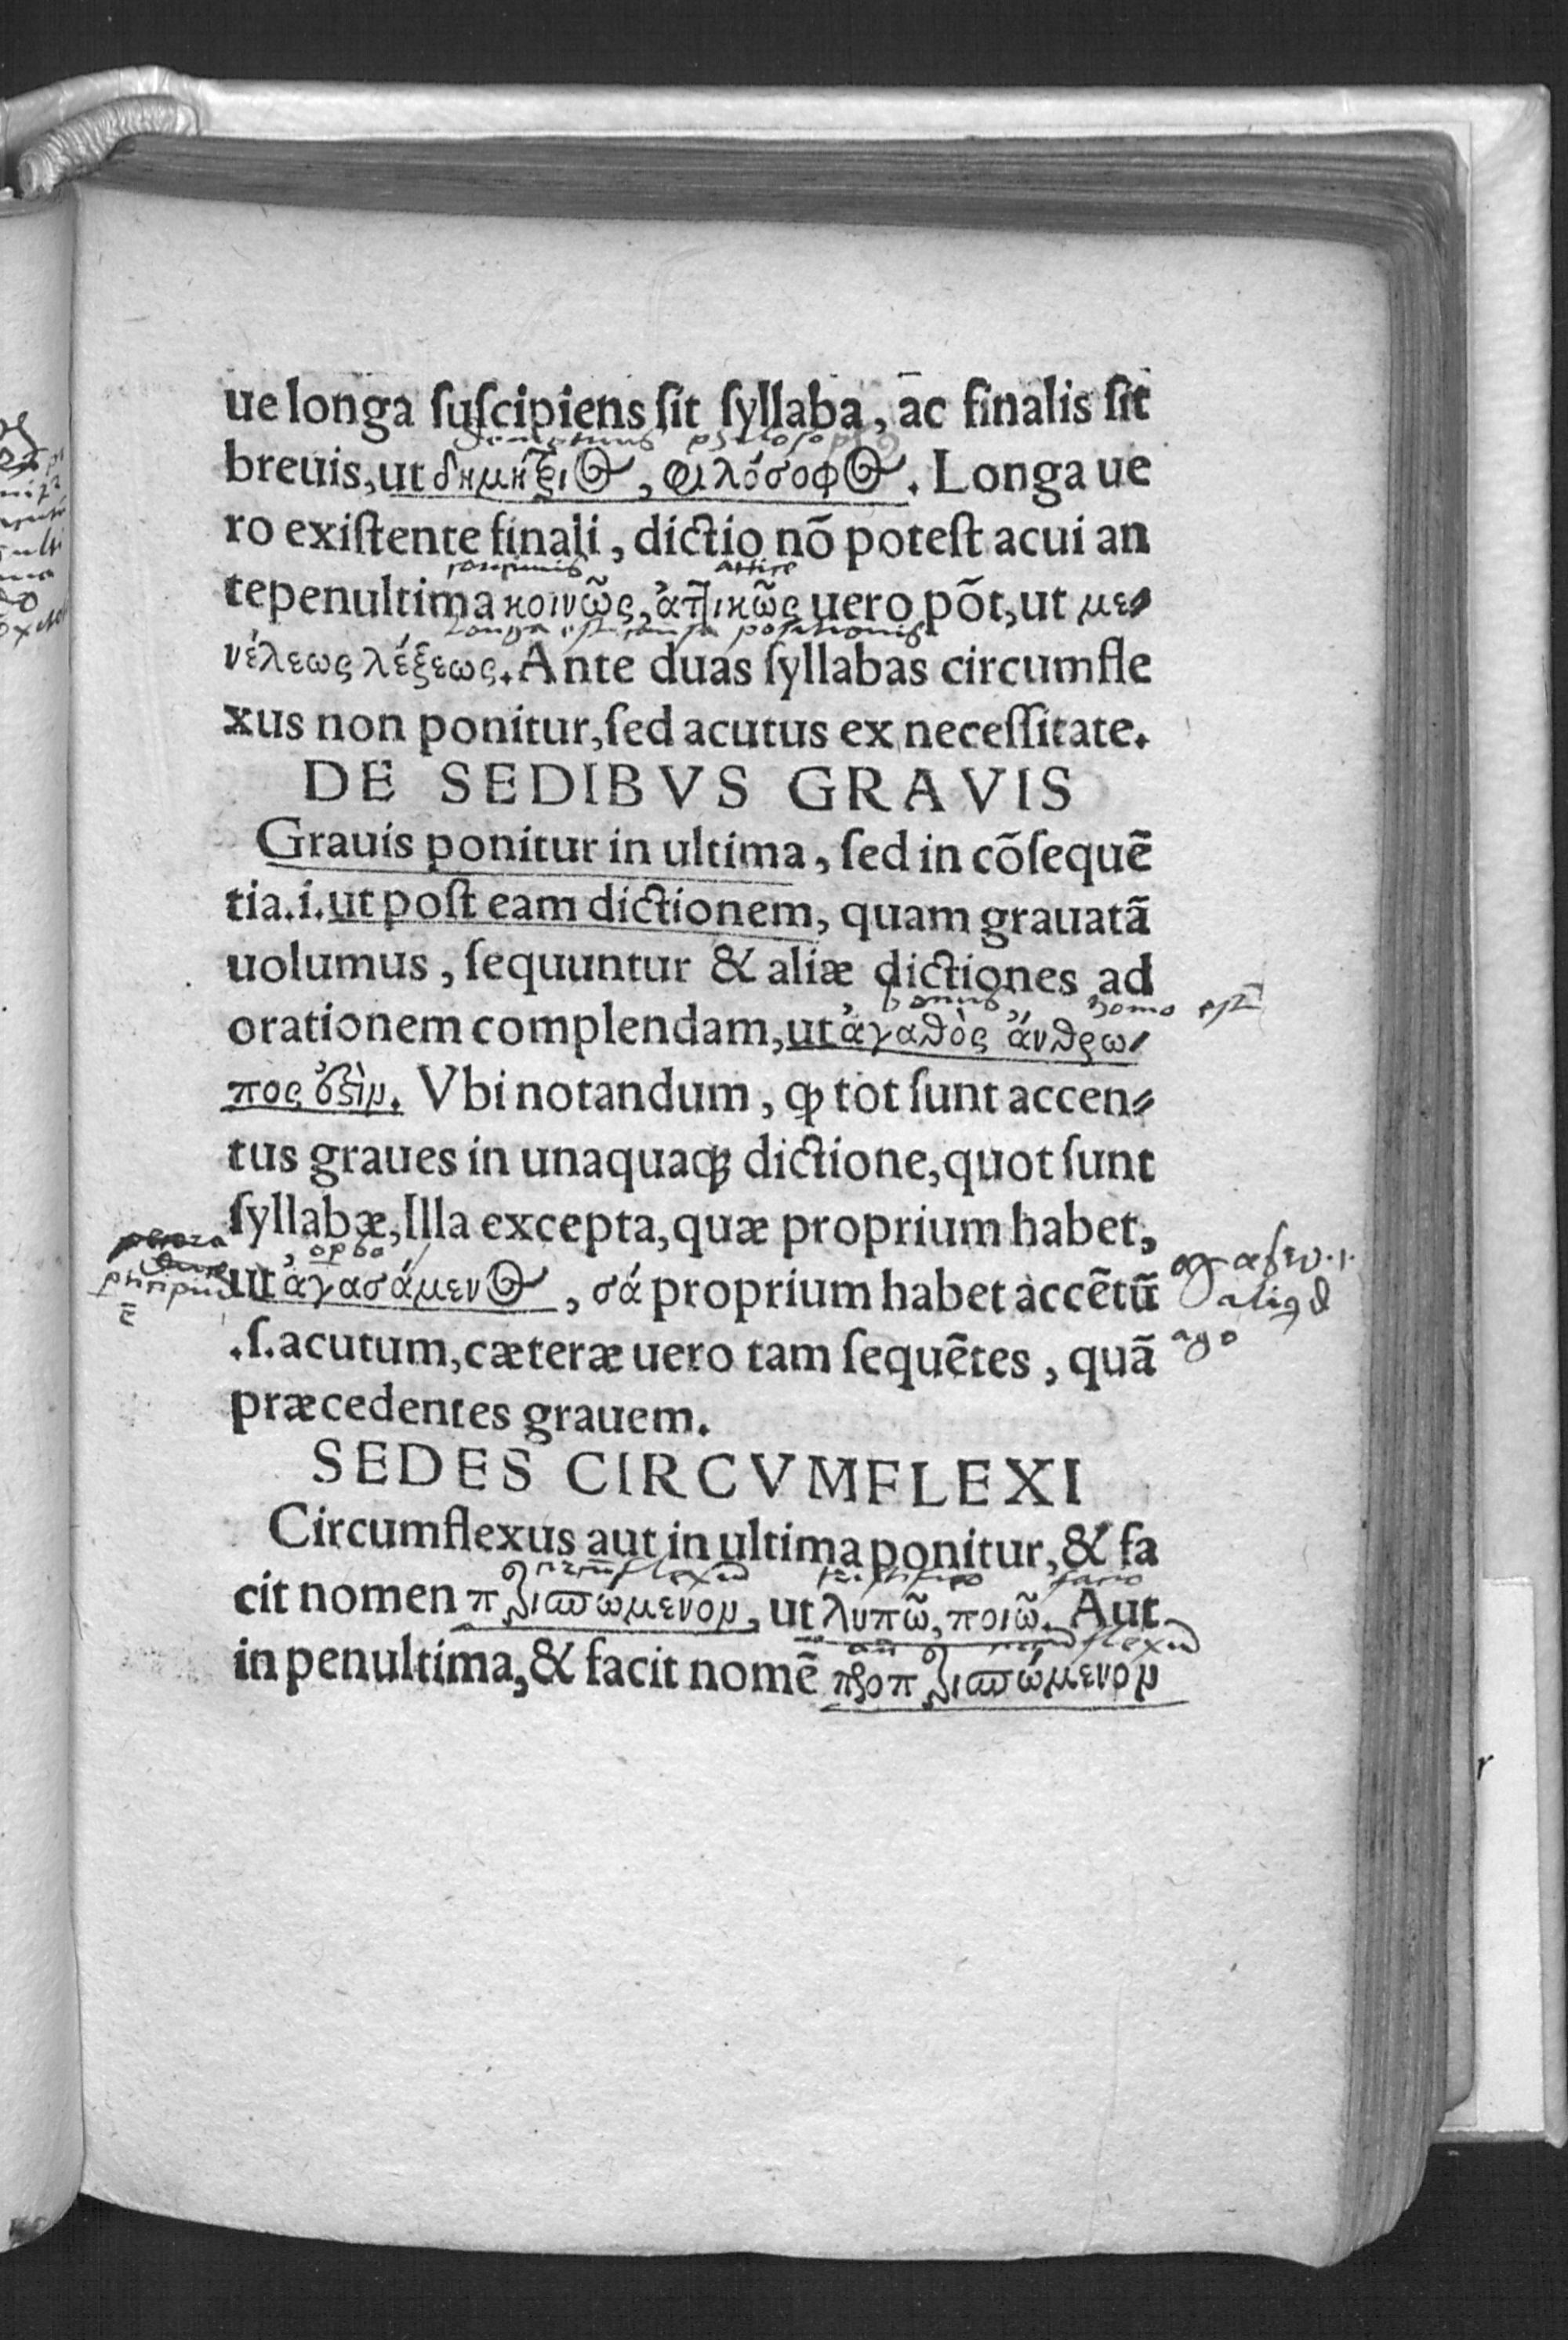 ue longa ſuſcipiens ſit ſyllaba, ac finalis ſit
breuis, ut δημήτριος, φιλόσοφος. Longa ue
ro exiſtente finali, dictio nõ poteſt acui an
tepenultima κοινῶς, ἀττικῶς uero põt, ut με⸗
νέλεως λέξεως. Ante duas ſyllabas circumfle
xus non ponitur, ſed acutus ex neceſſitate.
DE SEDIBVS GRAVIS
Grauis ponitur in ultima, ſed in cõſequẽ
tia.i. ut poſt eam dictionem, quam grauatã
uolumus, ſequuntur & aliæ dictiones ad
bonus homo est
orationem complendam, ut ἀγαθὸς ἄνθρω⸗
πος ἐστὶν. Vbi notandum, ꝙ tot ſunt accen⸗
tus graues in unaquaqꝫ dictione, quot ſunt
ſyllabæ, Illa excepta, quæ proprium habet,
ut ἀγασάμενος, σά proprium habet accẽtũ
.ſ. acutum, cæteræ uero tam ſequẽtes, quã
ago
præcedentes grauem.
SEDES CIRCVMFLEXI
Circumflexus aut in ultima ponitur, & fa
cit nomen περισπώμενον, ut λυπῶ, ποιῶ. Aut
in penultima, & facit nomẽ προπερισπώμενον